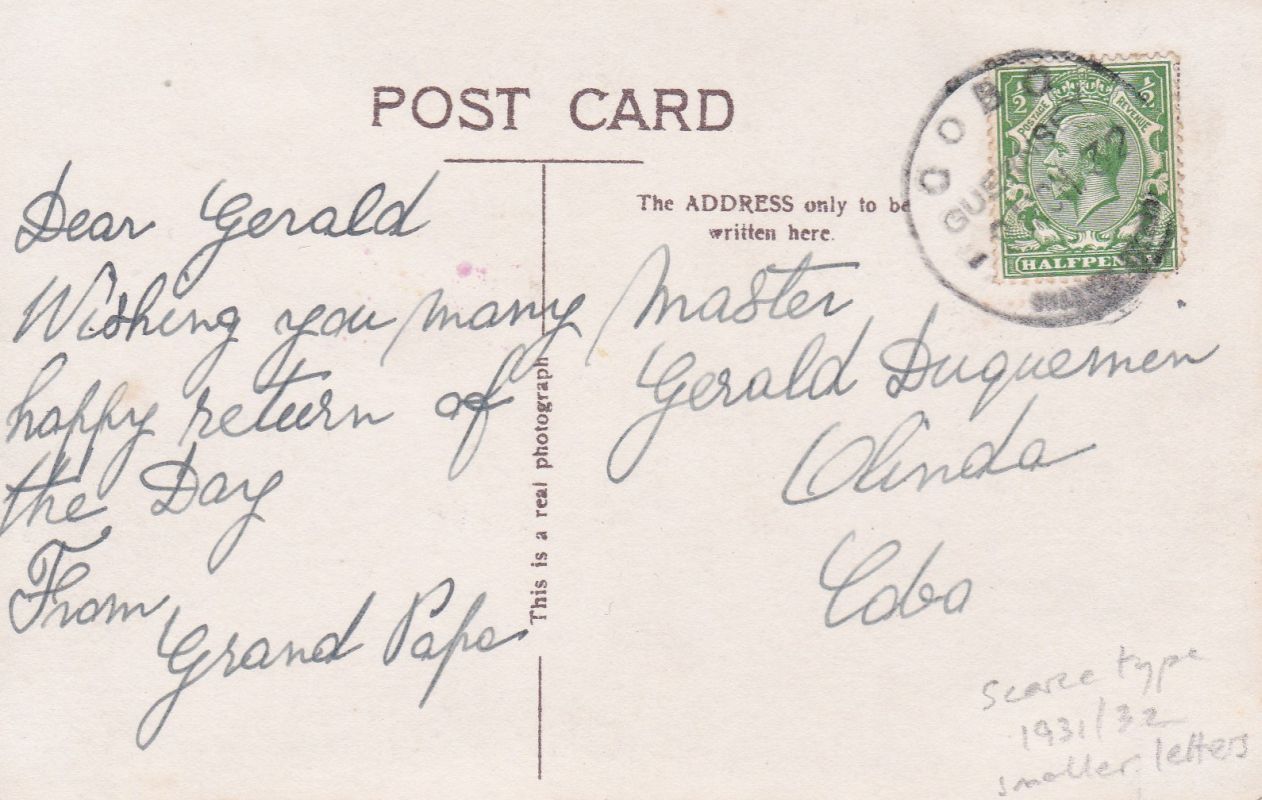 POST CARD
Dear Gerald
Wishing you many
happy return of
the Day
From
Grand Papa
This is a real photograph
The ADDRESS only to be
written here.
Master
Gerald Duquemen
Olinda
Cobo
COBO
GUERNSEY
32
½ ½
POSTAGE REVENUE
HALFPENNY
Scarce type
1931/32
smaller letters